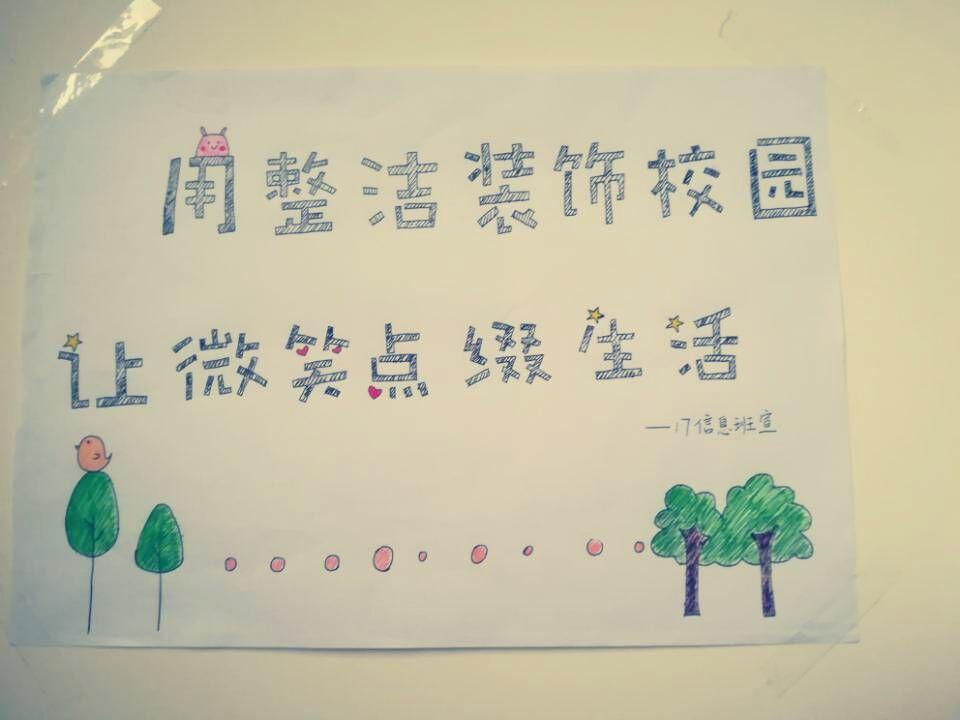 用整洁装饰校园
让微笑点缀生活
—17信息班宣